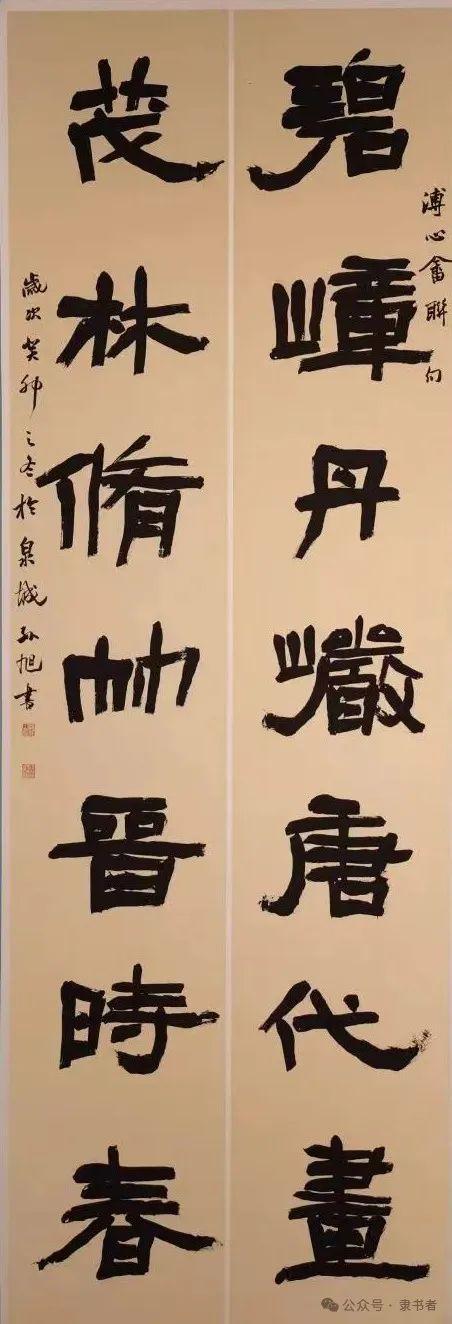 碧嶂丹巖唐代畫
溥心畬聯句
茂林脩竹晉時春
歲次癸卯之冬於泉城孙旭書
公众号·隶书者